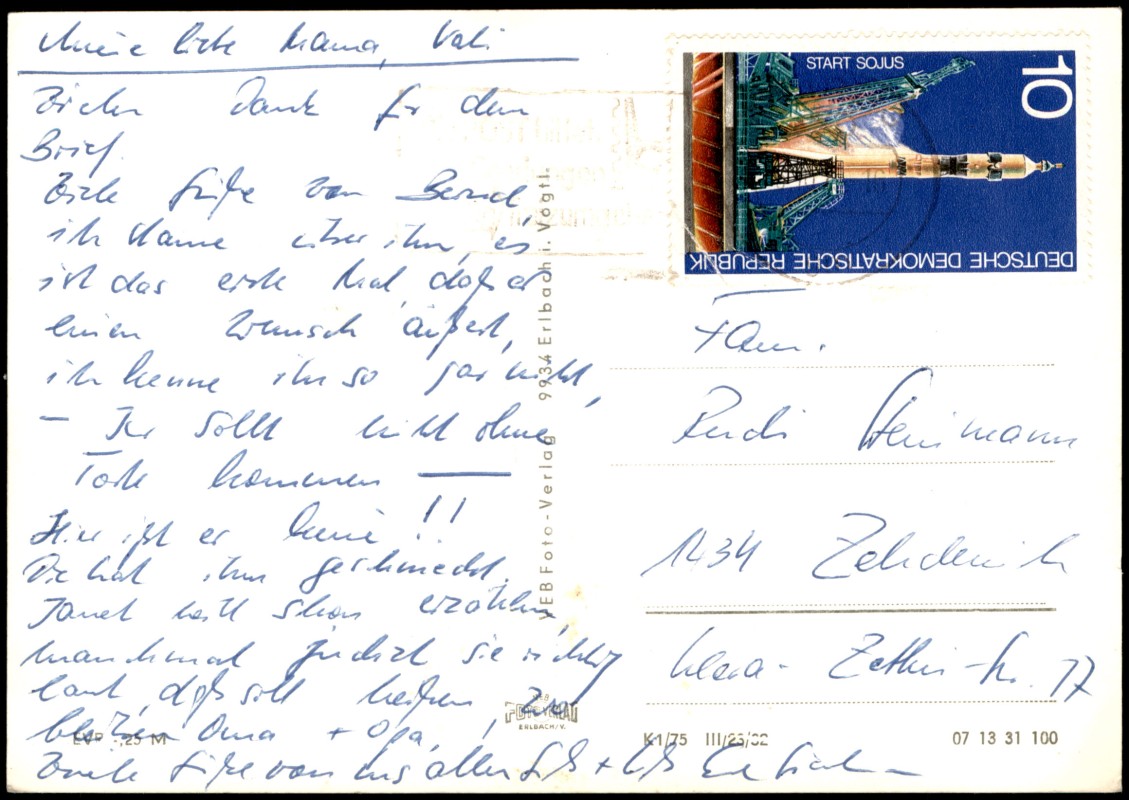 Meine liebe Mama, Vati
Vielen Dank für den
Brief.
Viele Grüße von Bernd,
ich staune über ihn, es
ist das erste Mal, daß er
einen Wunsch äußert,
ich kenne ihn so gar nicht,
- Ihr sollt nicht ohne
Torte kommen —
Hier ißt er keine!!
Die hat ihm geschmeckt.
Janet will schon erzählen,
manchmal juchzt sie richtig
laut, das soll heißen, zu
meinen Oma + Opa,!
Viele Grüße von uns allen
EVP -,25 M
VEB Foto-Verlag 9934 Erlbach i. Vogtl.
VEB
FOTO-VERLAG
ERLBACH/V.
START SOJUS
10
DEUTSCHE DEMOKRATISCHE REPUBLIK
Fam.
Rudi Steinmann
1434 Zehdenick
Clara-Zetkin-Str. 17
K1/75 III/26/82
07 13 31 100